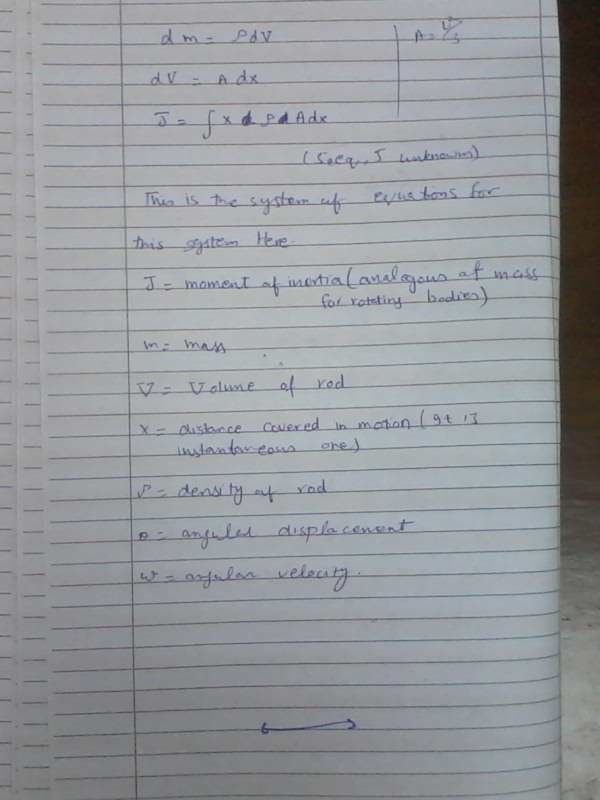 dm = ρdV
dV = A dx
J = ∫ x ρ A dx
(5 eq., 5 unknowns)
This is the system of equations for
this system Here.
J = moment of inertia (analogous of mass
for rotating bodies)
m = mass
V = Volume of rod
x = distance covered in motion (It is
instantaneous one)
ρ = density of rod
θ = angular displacement
w = angular velocity.